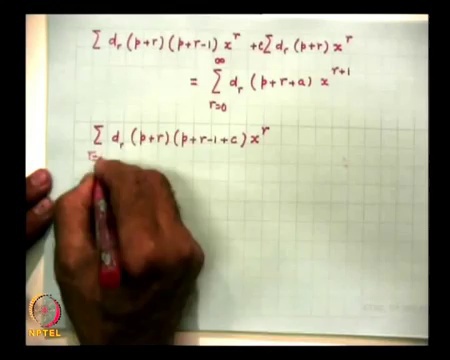 ∑ d_r (p+r) (p+r-1) x^r + c∑ d_r (p+r) x^r
= ∑_{r=0}^{∞} d_r (p+r+a) x^{r+1}
∑_{r=} d_r (p+r) (p+r-1+c) x^r
NPTEL